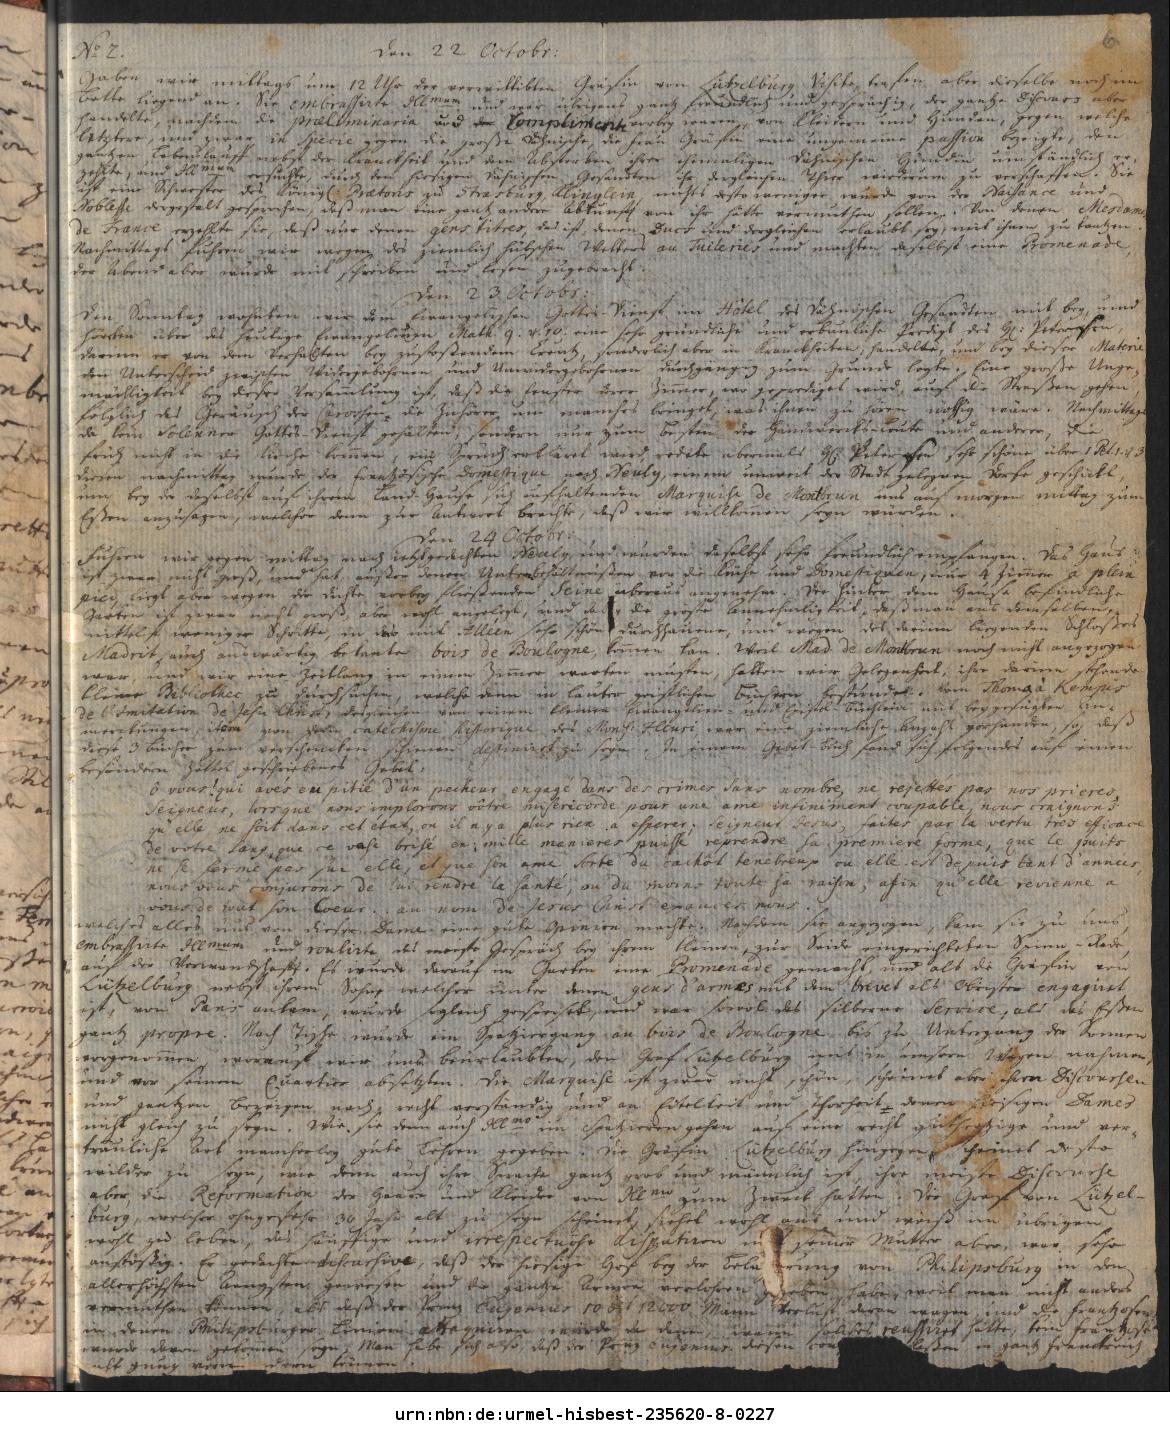 No 2. Den 22 Octobr: 6
Gaben wir mittags um 12 Uhr der verwittibten Gräfin von Lützelburg Visite, trafen aber dieselbe noch im
Bette liegend an. Sie embrassirte Illmum und war übrigens ganz freundlich und gesprächig, der gantze Discours aber
handelte, nachdem die præliminaria und Complimente vorbey waren, von Kleidern und Hunden, gegen welche
letztere, und zwar in specie gegen die große Dähnische, die Frau Gräfin eine ungemeine passion bezeigte, den
gantzen Lebenslauff nebst der Kranckheit und dem Absterben ihrer ehemaligen Dähnischen Hunden umständlich er-
zehlte, und Illmum ersuchte, durch den hiesigen Dähnischen Gesandten ihr dergleichen Thier wiederum zu verschaffen. Sie
ist eine Schwester des Königl. Prætoris zu Strasburg Klinglein, nichts destoweniger wurde von der Naissance und
Noblesse dergestalt gesprochen, daß man eine gantz andere Abkunft von ihr hätte vermuthen sollen. Von denen Mesdames
de France erzehlte sie, daß nur denen gens titrés, das ist, denen Ducs und dergleichen erlaubt sey, mit ihnen zu tantzen.
Nachmittags fuhren wir wegen des ziemlich hübschen Wetters au Tuileries und machten daselbst eine Promenade,
der Abend aber wurde mit schreiben und lesen zugebracht.
Den 23 Octobr:
Den Sonntag wohnten wir dem Evangelischen Gottes-Dienst im Hôtel des Dähnischen Gesandten mit bey, und
hörten über das heutige Evangelium Matth. 9. eine sehr gründliche und erbauliche Predigt des H. Petersen,
darinn er von dem Verhalten bey zustoßendem Creutz, sonderlich aber in Kranckheiten, handelte, und bey dieser Materie
den Unterscheid zwischen Wiedergebohrnen und Unwiedergebohrnen durchgängig zum Grunde legte. Eine große Unge-
mächligkeit bey dieser Versammlung ist, daß die Fenster derer Zimmer, wo geprediget wird, auf die Straßen gehen,
folglich das Geräusch der Carossen die Zuhörer um manches bringet, was ihnen zu hören nöthig wäre. Nachmittags
da kein solenner Gottes-Dienst gehalten, sondern nur zum Besten der Handwercksleute und anderer, die
früh nicht in die Kirche kommen, ein Spruch erkläret wird, redete abermals H. Petersen sehr schön über 1 Pet. 1. v. 3
Diesen nachmittag wurde der frantzösische Domestique nach Neuly, einem unweit der Stadt gelegenen Dorfe geschickt,
um bey der daselbst auf ihrem Land-Hause sich aufhaltenden Marquise de Montbrun uns auf morgen mittag zum
Essen anzusagen, welcher denn zur Antwort brachte, daß wir willkommen seyn würden.
Den 24 Octobr:
Fuhren wir gegen mittag nach jetztgedachten Neuly, und wurden daselbst sehr freundlich empfangen. Das Haus
ist zwar nicht groß, und hat, außer denen Unterbehältnüssen vor die Küche und Domestiquen, nur 4 Zimmer à plein
pied, liegt aber wegen der dichte vorbey fließenden Seine überaus angenehm. Der hinter dem Hause befindliche
Garten ist zwar nicht groß, aber wohl angelegt, und die große Annehmlichkeit, daß man aus demselben,
mittelst weniger Schritte, in das mit Alléen sehr schön durchhauene, und wegen des darinn liegenden Schloßes
Madrit auch auswärtig bekante bois de Boulogne, kommen kan. Weil Mad. de Montbrun noch nicht angezogen
war, und wir eine Zeitlang in einem Zimmer warten musten, hatten wir Gelegenheit, ihre darinn stehende
kleine Bibliothec zu durchsuchen, welche denn in lauter geistlichen Büchern bestunde. Vom Thoma à Kempis
de l'Imitation de Jesu Christ, desgleichen von einem kleinen Evangelien- und Epistel-Büchlein mit beygefügten An-
merckungen, item von dem catechisme historique des Mons. Fleuri war eine ziemliche Anzahl vorhanden, so, daß
diese 3 bücher zum verschencken schienen destiniret zu seyn. In einem Gebet-Buch fand sich folgendes auf einen
besondern Zettel geschriebenes Gebet:
ô vous! qui avés eu pitié d'un pecheur engagé dans des crimes sans nombre, ne rejettés pas nos prieres,
Seigneur, lorsque nous implorons vôtre misericorde pour une ame infiniment coupable, nous craignons
qu'elle ne soit dans cet état, ou il n'y a plus rien a esperer; Seigneur Jesus, faites par la vertu tres efficace
de votre sang, que ce vase brisé en mille manieres puisse reprendre sa premiere forme, que le puits
ne se ferme pas sur elle, et que son ame sorte du cachôt tenebreux ou elle est depuis tant d'années,
nous vous conjurons de lui rendre la santé, ou du moins toute sa raison, afin qu'elle revienne a
vous de tout son Coeur. au nom de Jesus Christ exaucés nous.
welches alles uns von dieser Dame eine gute Opinion machte. Nachdem sie angezogen, kam sie zu uns,
embrassirte Illmum und roulirte das meiste Gespräch bey ihrem kleinen, zur Seide eingerichteten Spinn-Rade,
auf der Verwandschafft. Es wurde darauf im Garten eine Promenade gemacht, und als die Gräfin von
Lützelburg nebst ihrem Sohne welcher unter denen gens d'armes mit dem brevet als Obrister engagiret
ist, von Paris ankam, wurde sogleich gespeiset, und war sowol das silberne Service, als das Essen
gantz propre. Nach Tische wurde ein Spatziergang au bois de Boulogne bis zu Untergang der Sonnen
vorgenommen, worauf wir uns beurlaubten, den Graf Lützelburg mit in unsern Wagen nahmen,
und vor seinem Quartier absetzten. Die Marquise ist zwar nicht schön, scheinet aber ihren Discoursen
und gantzen Bezeigen nach, recht verständig und an Eitelkeit und Thorheit denen hiesigen Dames
nicht gleich zu seyn. Wie sie denn auch Illmo im Spatzierengehen auf eine recht gutherzige und ver-
trauliche Art mancherley gute Lehren gegeben. Die Gräfin Lützelburg hingegen scheinet desto
wilder zu seyn, wie denn auch ihre Sprache gantz grob und männlich ist, ihre meiste Discourse
aber die Reformation der Haare und Kleider von Illmo zum Zweck hatten. Der Graf von Lützel-
burg, welcher ohngefehr 30 Jahr alt zu seyn scheinet, siehet wohl aus und weiß im übrigen
wohl zu leben, das häuffige und irrespectuose disputiren mit seiner Mutter aber war sehr
anstößig. Er gedachte discursive, daß der hiesige Hof bey der Belagerung von Philipsburg in den
allerhöchsten Aengsten gewesen und die gantze Armee verlohren gegeben habe, weil man nicht anders
vermuthen können, als daß der Prinz Eugenius 10 bis 12000 Mann Verlust daran wagen, und die Frantzosen
in denen Philipsburger Linien attaquiren würde, da denn, wann solches reussiret hätte, kein Frantzose
würde davon gekommen seyn. Man habe sich also, daß der Prinz Eugenius diesen lassen, in gantz Franckreich
nicht gnug verwundern können.
urn:nbn:de:urmel-hisbest-235620-8-0227